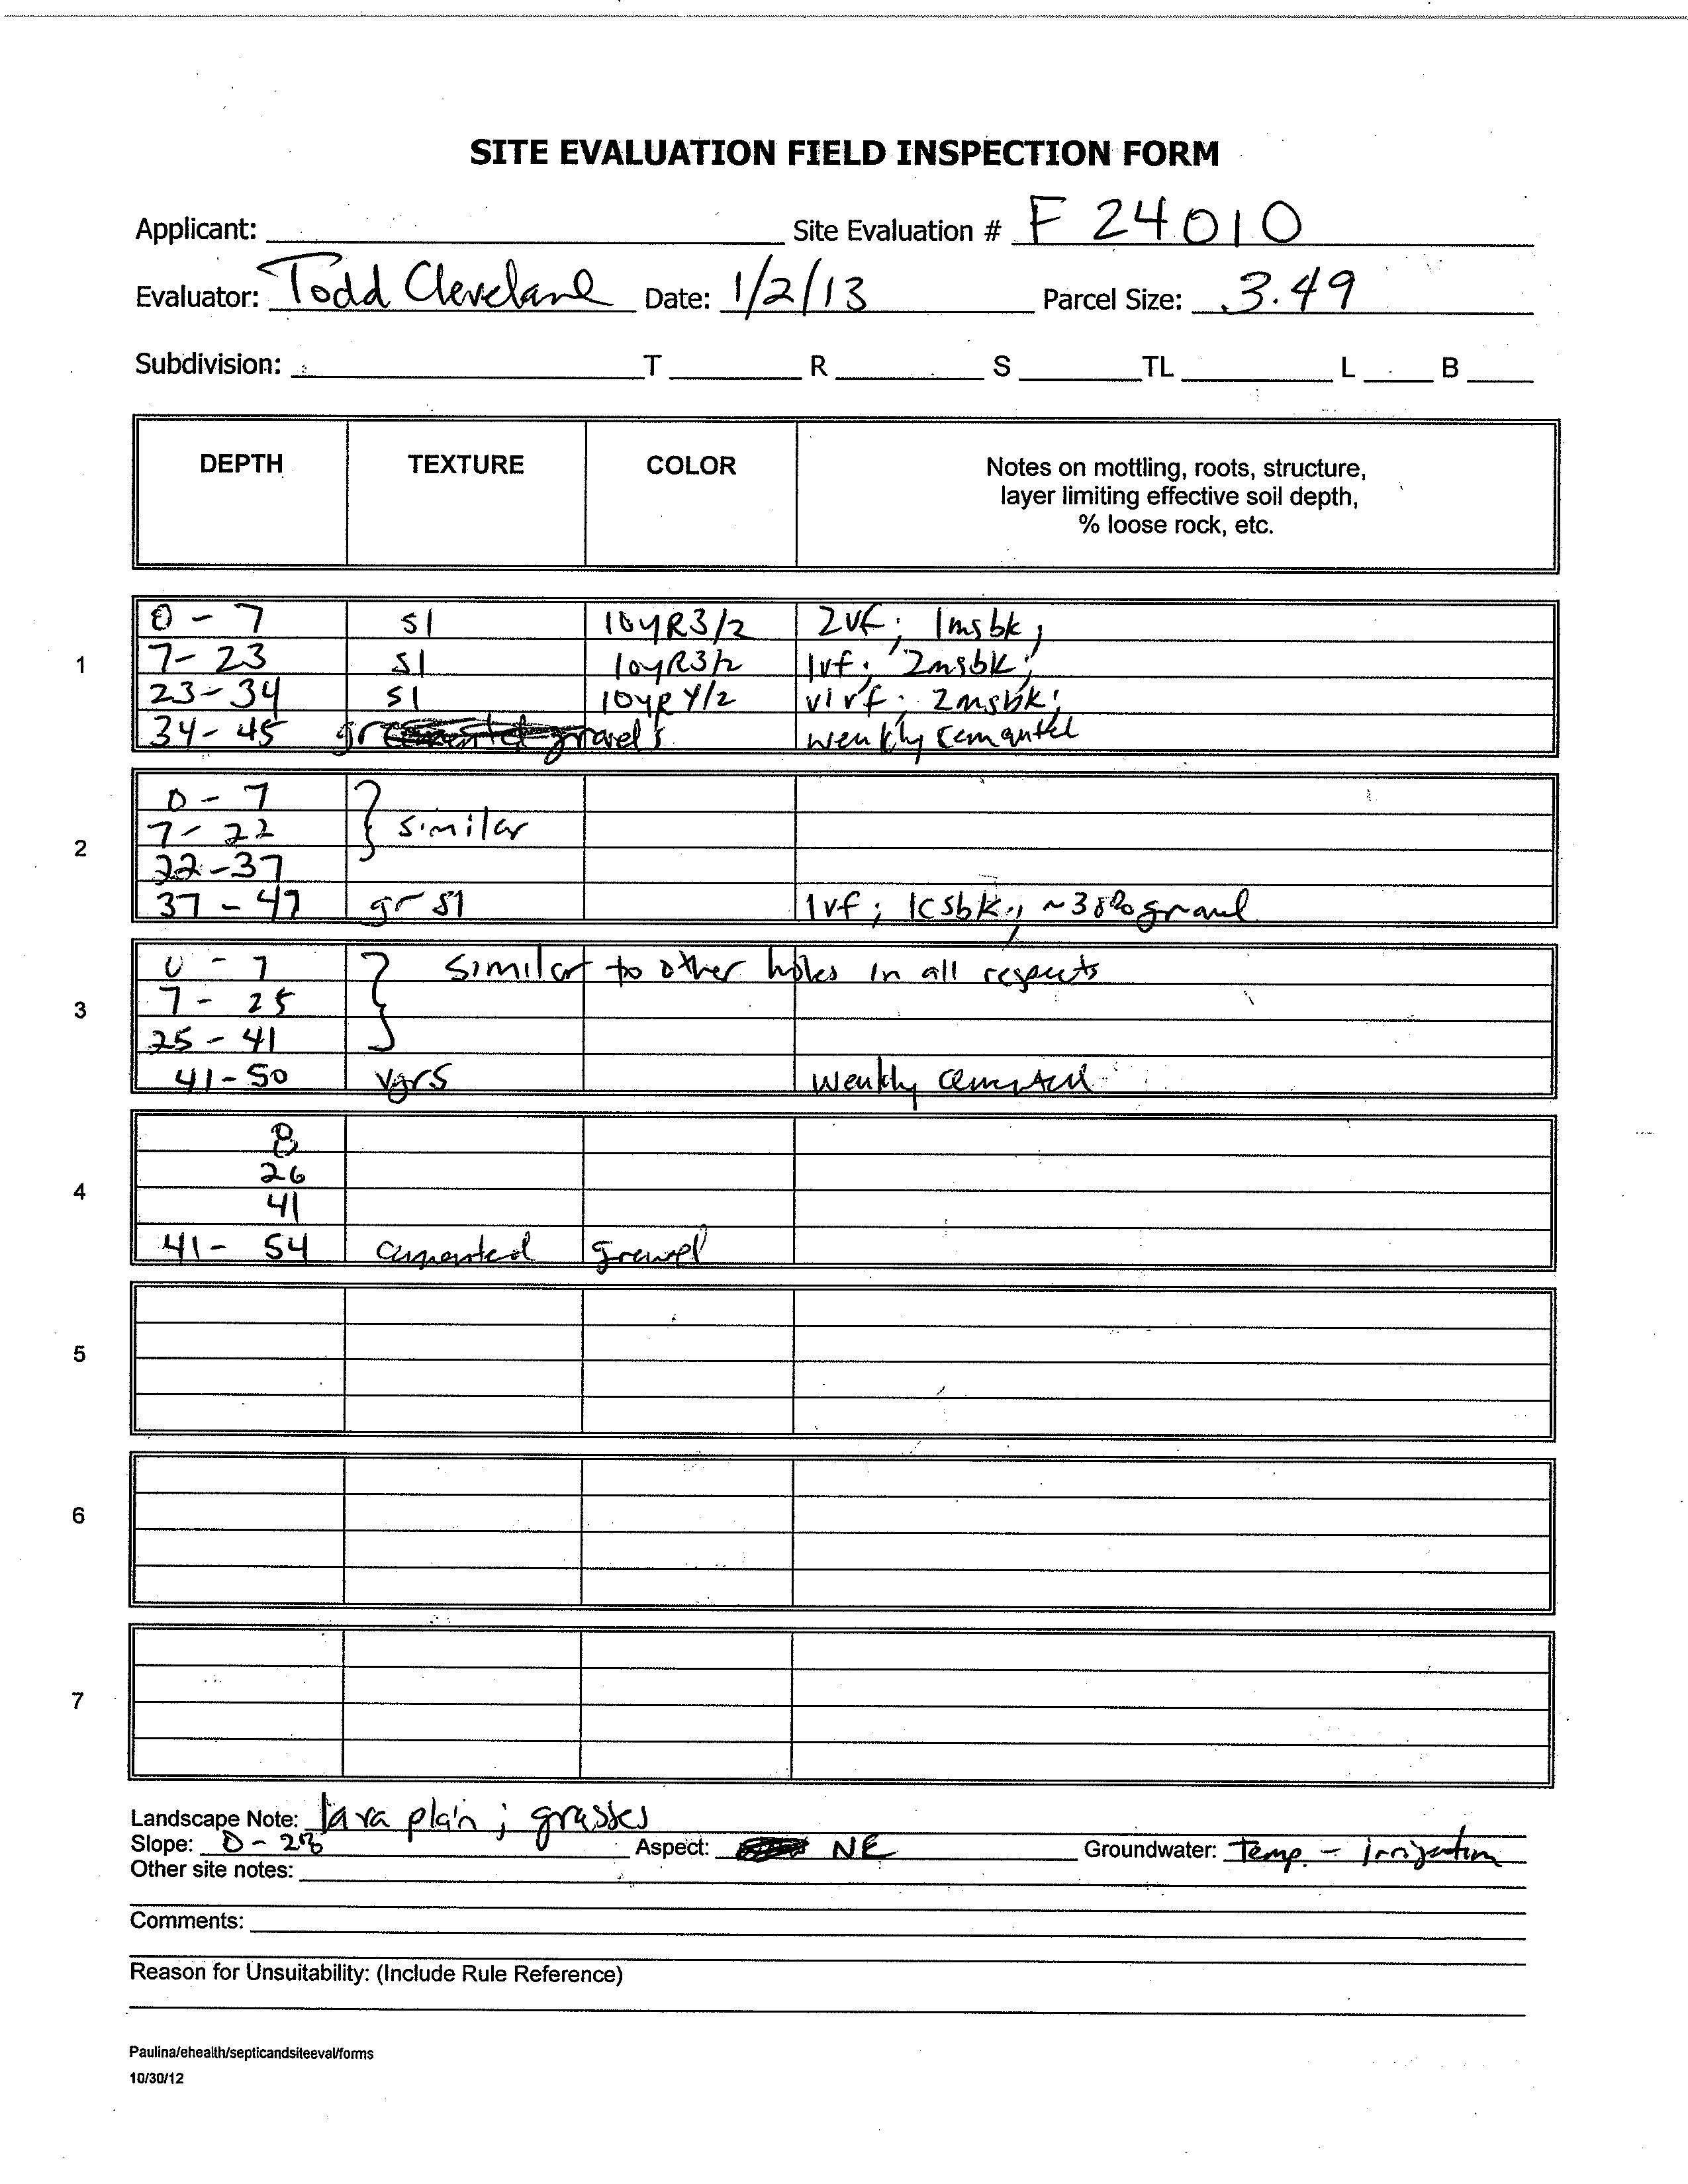 SITE EVALUATION FIELD INSPECTION FORM
Applicant: Site Evaluation # F 24010
Evaluator: Todd Cleveland Date: 1/2/13 Parcel Size: 3.49
Subdivision: T R S TL L B
DEPTH TEXTURE COLOR Notes on mottling, roots, structure,
layer limiting effective soil depth,
% loose rock, etc.
1
0 - 7 sl 10YR3/2 2vf; 1msbk;
7- 23 sl 10yR3/2 1vf; 2msbk;
23- 34 sl 10YR 4/2 v1vf; 2msbk;
34- 45 gr gravels weakly cemented
2
0 - 7
7- 22 similar
22-37
37 - 47 gr sl 1vf; 1csbk; ~30% gravel
3
0 - 7 similar to other holes in all respects
7- 25
25 - 41
41-50 vgrS weakly cemented
4
8
26
41
41- 54 cemented gravel
5
6
7
Landscape Note: lava plain; grasses
Slope: 0-2% Aspect: NE Groundwater: Temp. - irrigation
Other site notes:
Comments:
Reason for Unsuitability: (Include Rule Reference)
Paulina/ehealth/septicandsiteeval/forms
10/30/12